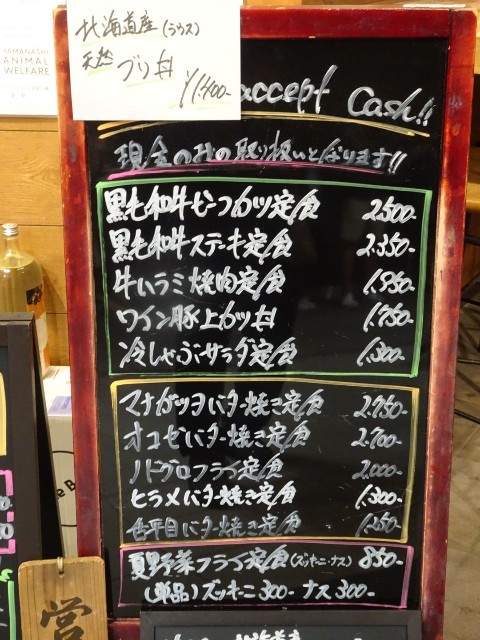 YAMANASHI
ANIMAL
WELFARE
北海道産(ラウス)
天然 ブリ丼
¥1,400-
accept Cash!!
現金のみの取り扱いとなります!!
黒毛和牛ビーフカツ定食 2,500-
黒毛和牛ステーキ定食 2,350-
牛ハラミ焼肉定食 1,950-
ワイン豚上カツ丼 1,750-
冷しゃぶサラダ定食 1,300-
マナガツオバター焼き定食 2,750-
オコゼバター焼き定食 2,700-
ノドグロフライ定食 2,000-
ヒラメバター焼き定食 1,300-
舌平目バター焼き定食 1,250-
夏野菜フライ定食(ズッキーニ・ナス) 850-
(単品)ズッキーニ 300- ナス 300-
営